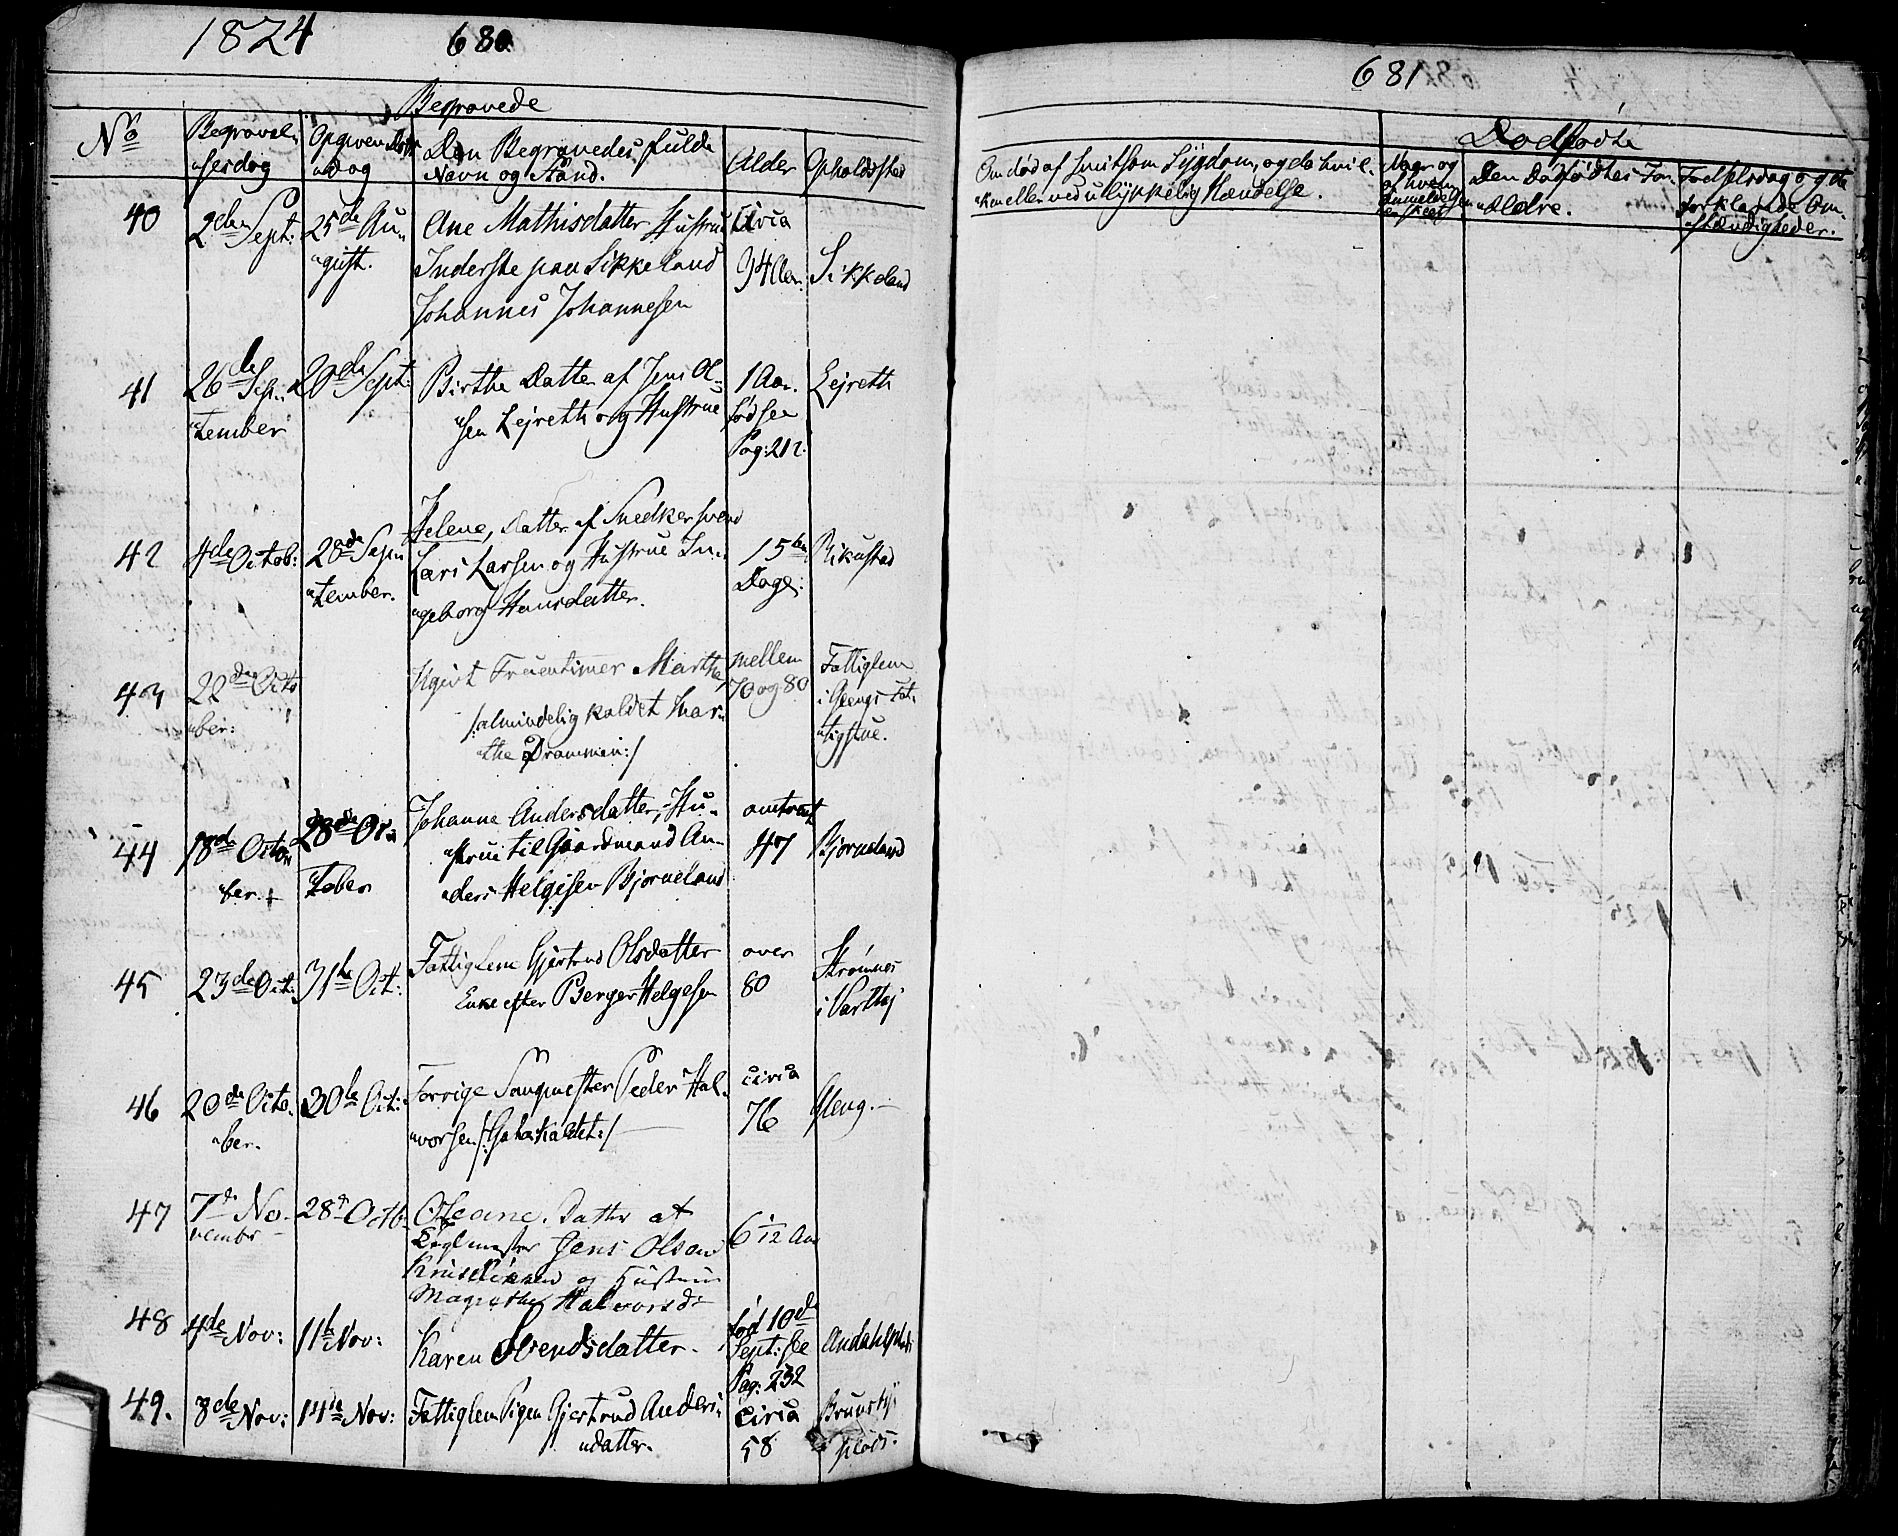 1824 680
Begravede
No
Begravel-
sesdag
den Begravedes fulde
Navn og Stand.
Alder
Opholdssted
40
2den Sept:
25de Au-
gust.
Ane Mathisdatter Hustrue
Inderste paa Sikkeland
Johannes Johannesen
Circa
94 Aar.
Sikkeland
41
26de Sep-
tember
20de Sept:
Birthe Datter af Jens Ol-
sen Lejreth og Hustrue
1 Aar.
født see
Pag: 212.
Lejreth
42
4de Octob:
28de Sep-
tember.
Helene, Datter af Snedkersvend
Lars Larsen og Hustrue In-
geborg Hansdatter.
15ten
Dage:
Rikustad
43
22de Octo
ber:
Ugivt Fruentimer Marthe,
/: almindelig kaldet Mar-
the Drammen:/
mellem
70 og 80
Fattiglem
i Glengs Fat-
tigstue.
44
18de Octo-
ber.
28de Oc-
tober
Johanne Andersdatter, Hu-
strue til Gaardmand An-
ders Helgesen Bjørneland
omtrent
47
Bjørneland
45
23de Oct:
31te Oct:
Fattiglem Gjertrud Olsdatter
Enke efter Berger Helgesen
over
80
Strømnes
i Varteig
46
20de Octo-
ber.
30te Oct:
Forrige Saugmester Peder Hal-
vorsen
circa
76
Gleng.
47
7de No-
vembr
28de Octb.
Oleane. Datter af
Teglmester Jens Olsen
og Hustrue
Magrethe Halvorsdr
6 1/12 Aar
48
4de Nov:
11te Nov:
Karen Svendsdatter.
fød 10de
Sept: see
Pag: 232
49.
8de Nov:
14de Nov:
Fattiglem Pigen Gjertrud Anders-
datter.
circa
58
plads.
681
Om død af smitsom Sygdom, og da hvil-
ken eller ved ulykkelig Hændelse.
Naar og
af hvem
Anmeldelsen
er skeet
Dødfødte
Den Dødfødtes For-
ældre.
Fødselsdag og de
forklarende Om-
stændigheder.